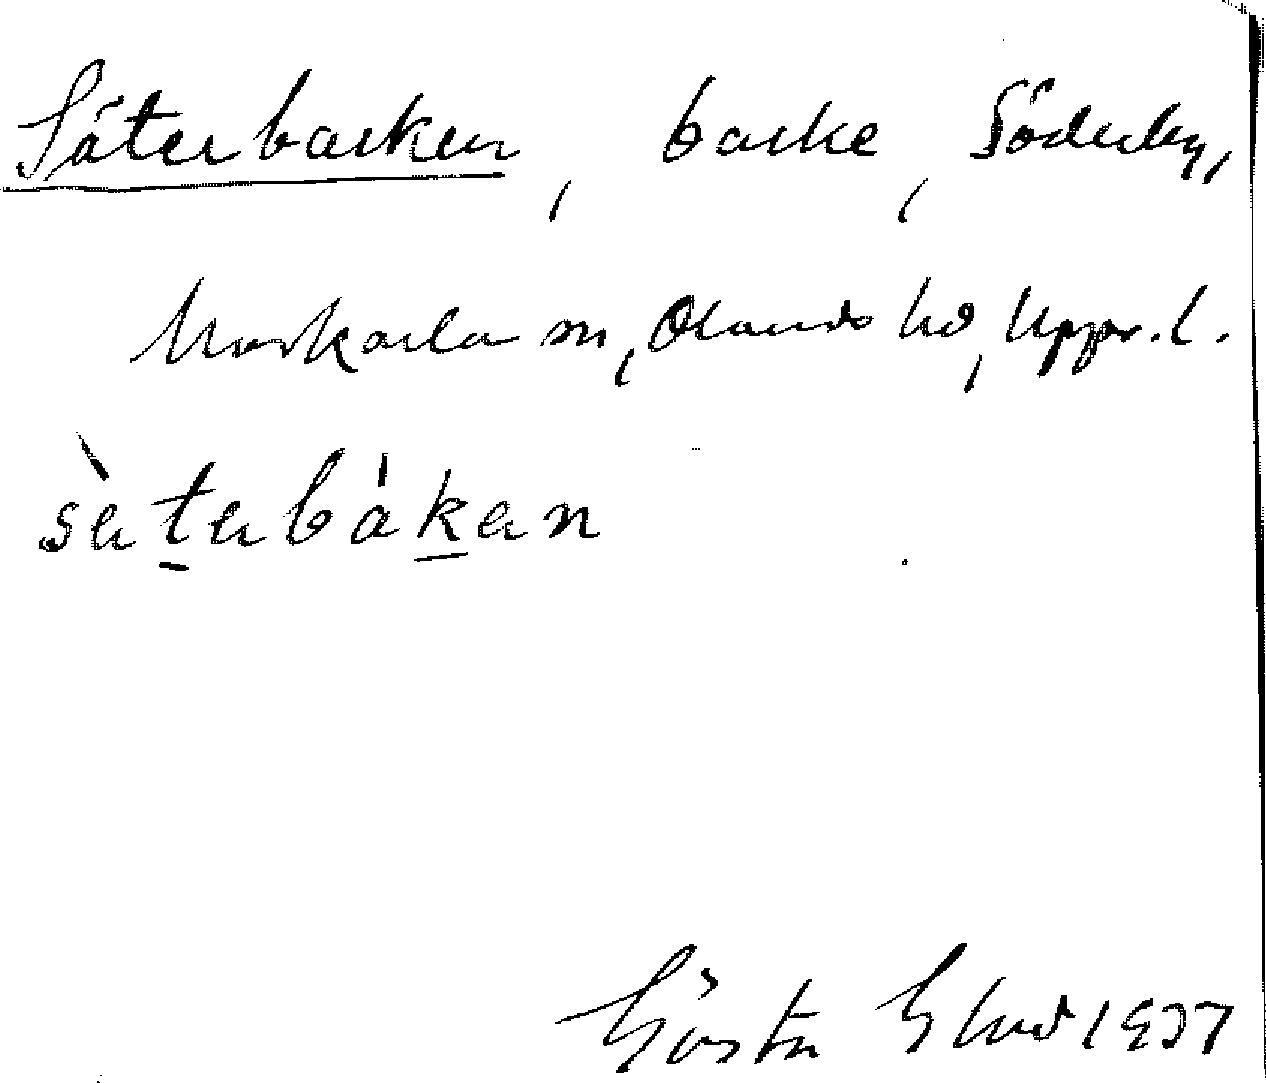 Säterbacken, backe, Söderby,
Morkarla sn, Olands hd, Uppr. l.
sàterbákan
Gösta 1937